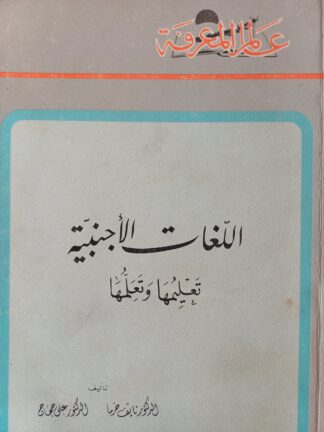 عالم المعرفة
اللّغات الأجنبيّة
تَعْلِيمُهَا وَتَعَلُّمُهَا
تأليف
الدكتور نايف خرما    الدكتور علي حجاج